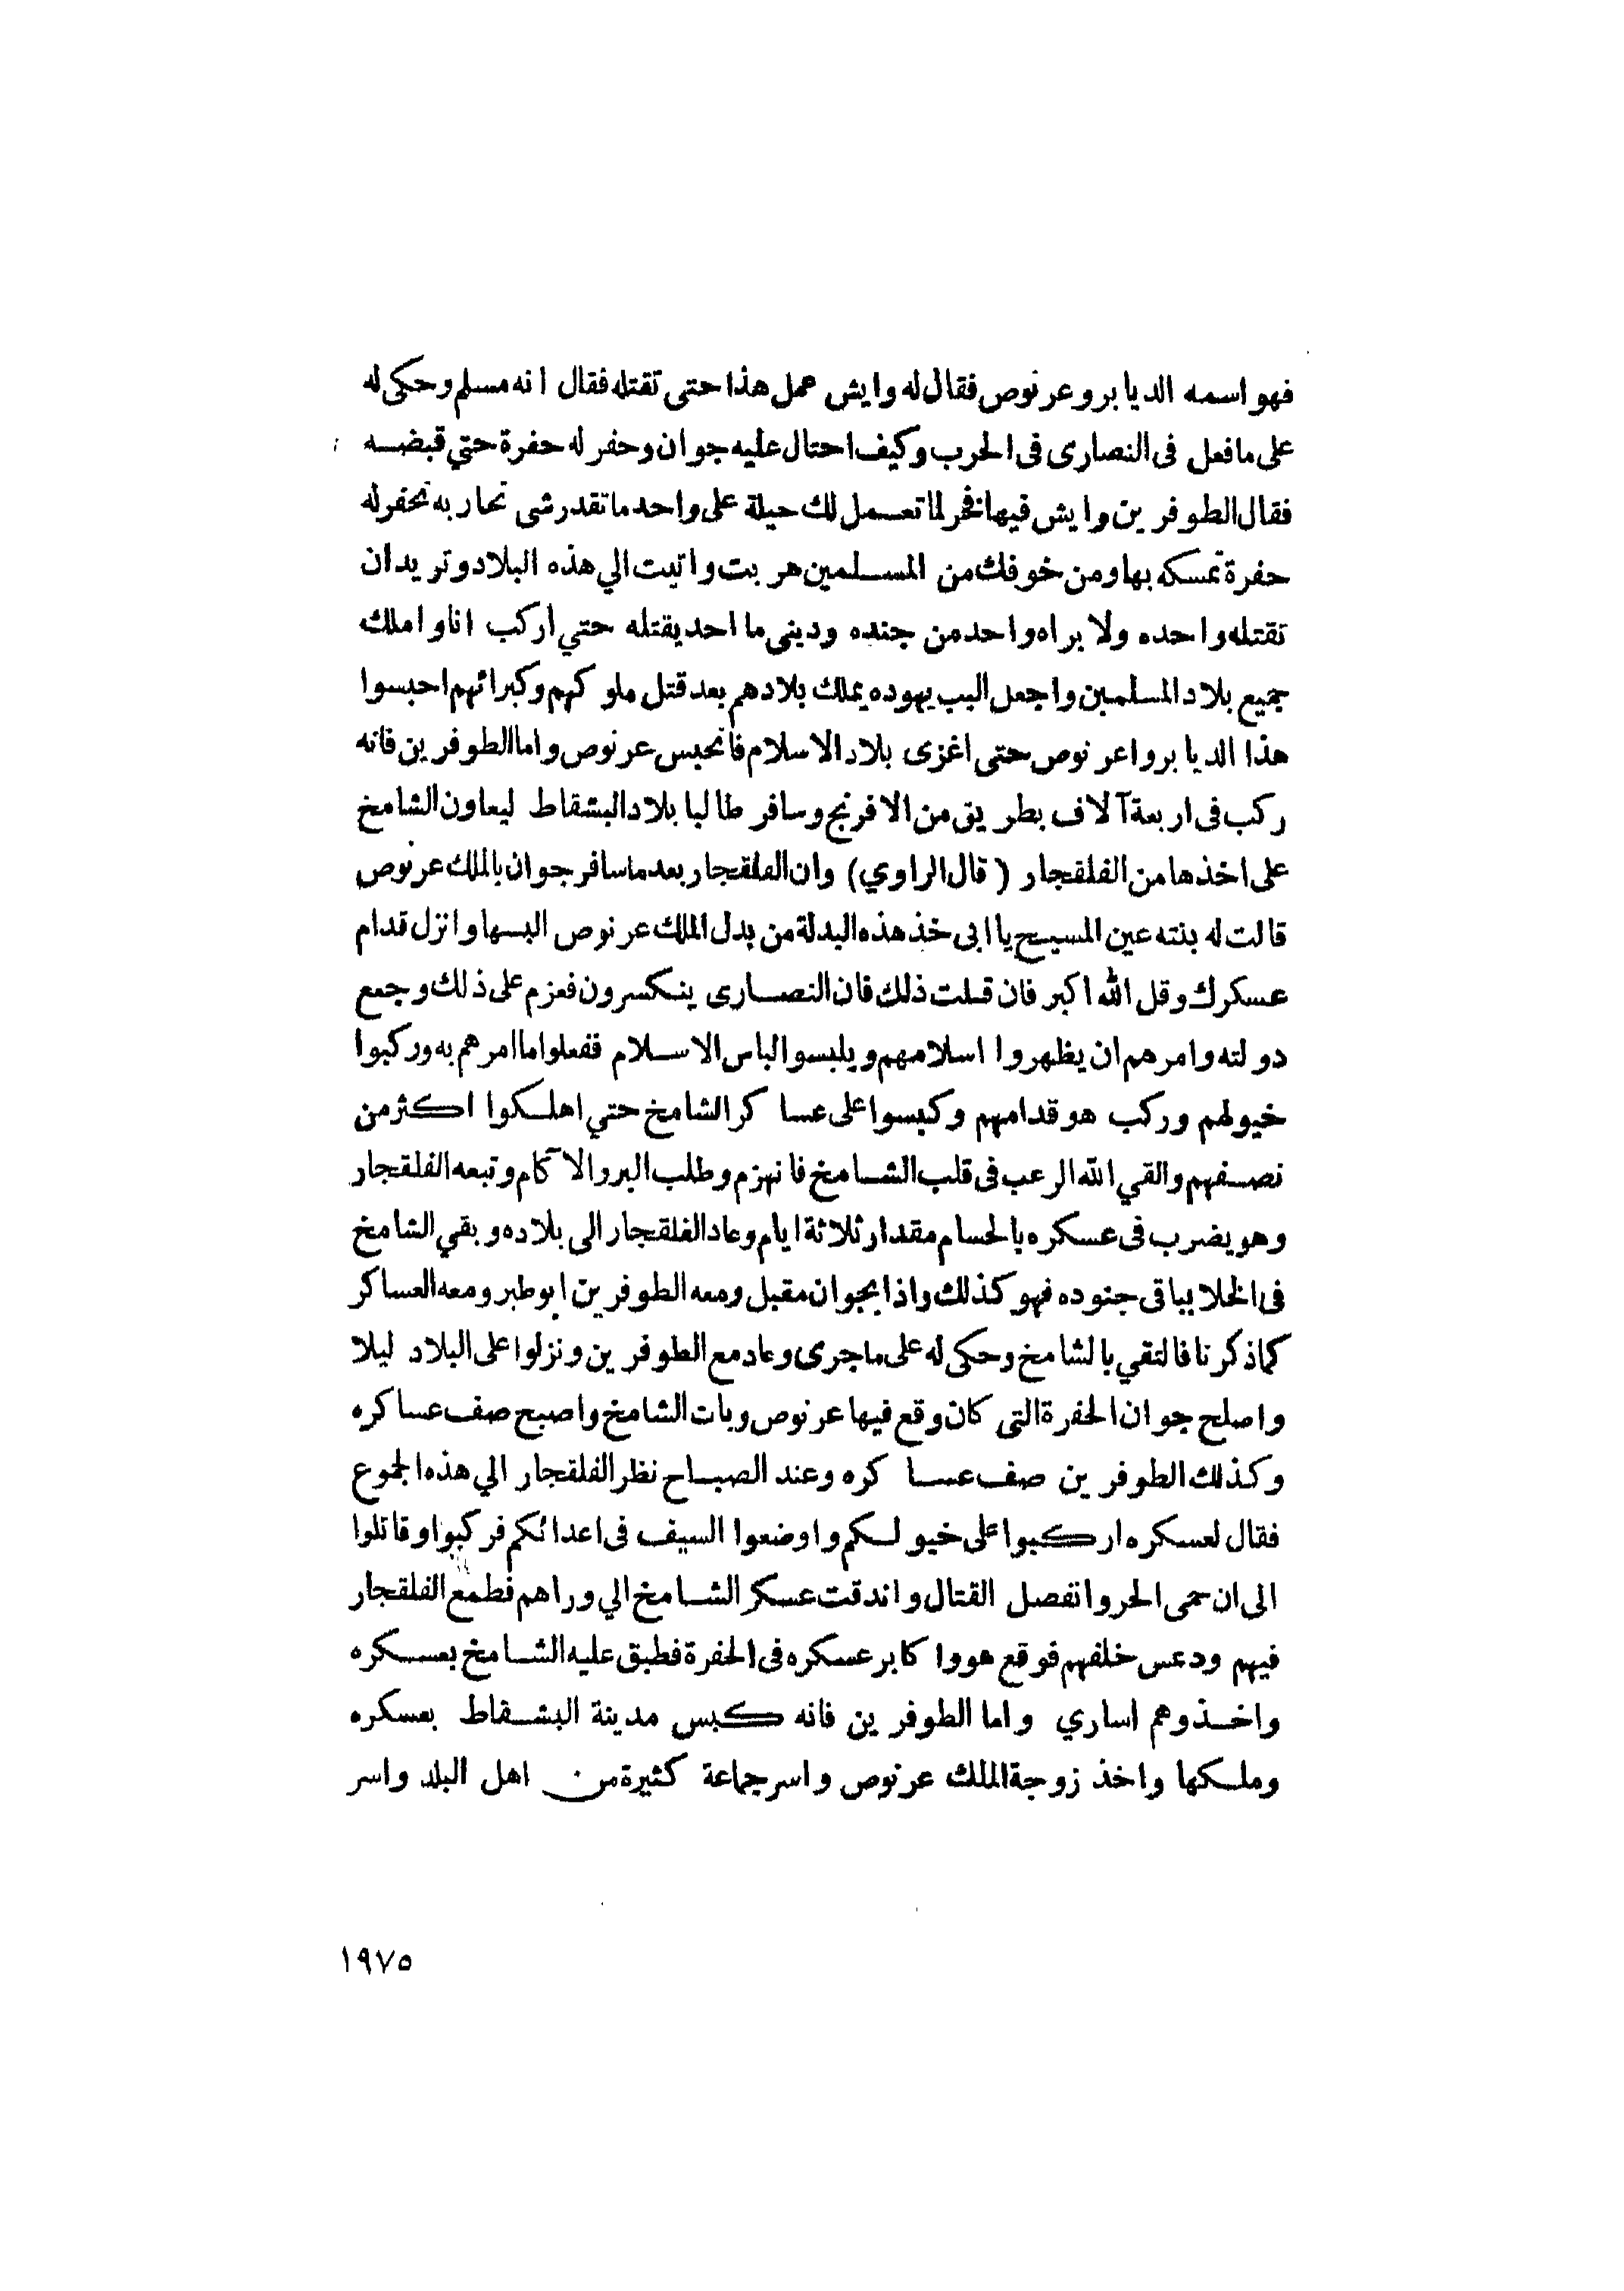 فهو اسمه الديابرو عرنوص فقال له وايش عمل هذا حتى تقتله فقال انه مسلم وحكى له
على ما فعل فى النصارى فى الحرب وكيف احتال عليه جوان وحفر له حفرة حتي قبضه
فقال الطوفرين وايش فيها فخر لما تعمل لك حيلة على واحد ما تقدرشى تحاربه تحفر له
حفرة تمسكه بها ومن خوفك من المسلمين هربت واتيت الي هذه البلاد وتريد ان
تقتله واحده ولا يراه واحد من جنده ودينى ما احد يقتله حتي اركب انا واملك
جميع بلاد المسلمين واجعل البب يهوده يملك بلادهم بعد قتل ملوكهم وكبرائهم احبسوا
هذا الديابرو اعرنوص حتى اغزى بلاد الاسلام فانحبس عرنوص واما الطوفرين فانه
ركب فى اربعة آلاف بطريق من الافرنج وسافر طالبا بلاد البشقاط ليعاون الشامخ
على اخذها من الفلقجار (قال الراوي) وان الفلقجار بعد ما سافر جوان بالملك عرنوص
قالت له بنته عين المسيح يا ابى خذ هذه البدلة من بدل الملك عرنوص البسها وانزل قدام
عسكرك وقل الله اكبر فان قلت ذلك فان النصارى ينكسرون فعزم على ذلك وجمع
دولته وامرهم ان يظهروا اسلامهم ويلبسوا لباس الاسلام ففعلوا ما امرهم به وركبوا
خيولهم وركب هو قدامهم وكبسوا على عساكر الشامخ حتي اهلكوا اكثر من
نصفهم والقي الله الرعب فى قلب الشامخ فانهزم وطلب البر والآكام وتبعه الفلقجار
وهو يضرب فى عسكره بالحسام مقدار ثلاثة ايام وعاد الفلقجار الى بلاده وبقي الشامخ
فى الخلا بباقى جنوده فهو كذلك واذا بجوان مقبل ومعه الطوفرين ابو طبر ومعه العساكر
كما ذكرنا فالتقي بالشامخ وحكى له على ما جرى وعاد مع الطوفرين ونزلوا على البلاد ليلا
واصلح جوان الحفرة التى كان وقع فيها عرنوص وبات الشامخ واصبح صف عساكره
وكذلك الطوفرين صف عساكره وعند الصباح نظر الفلقجار الي هذه الجموع
فقال لعسكره اركبوا على خيولكم واوضعوا السيف فى اعدائكم فركبوا وقاتلوا
الى ان حمى الحر وانفصل القتال واندقت عسكر الشامخ الي وراهم فطمع الفلقجار
فيهم ودعس خلفهم فوقع هو واكابر عسكره فى الحفرة فطبق عليه الشامخ بعسكره
واخذوهم اساري واما الطوفرين فانه كبس مدينة البشقاط بعسكره
وملكها واخذ زوجة الملك عرنوص واسر جماعة كثيرة من اهل البلد واسر
١٩٧٥